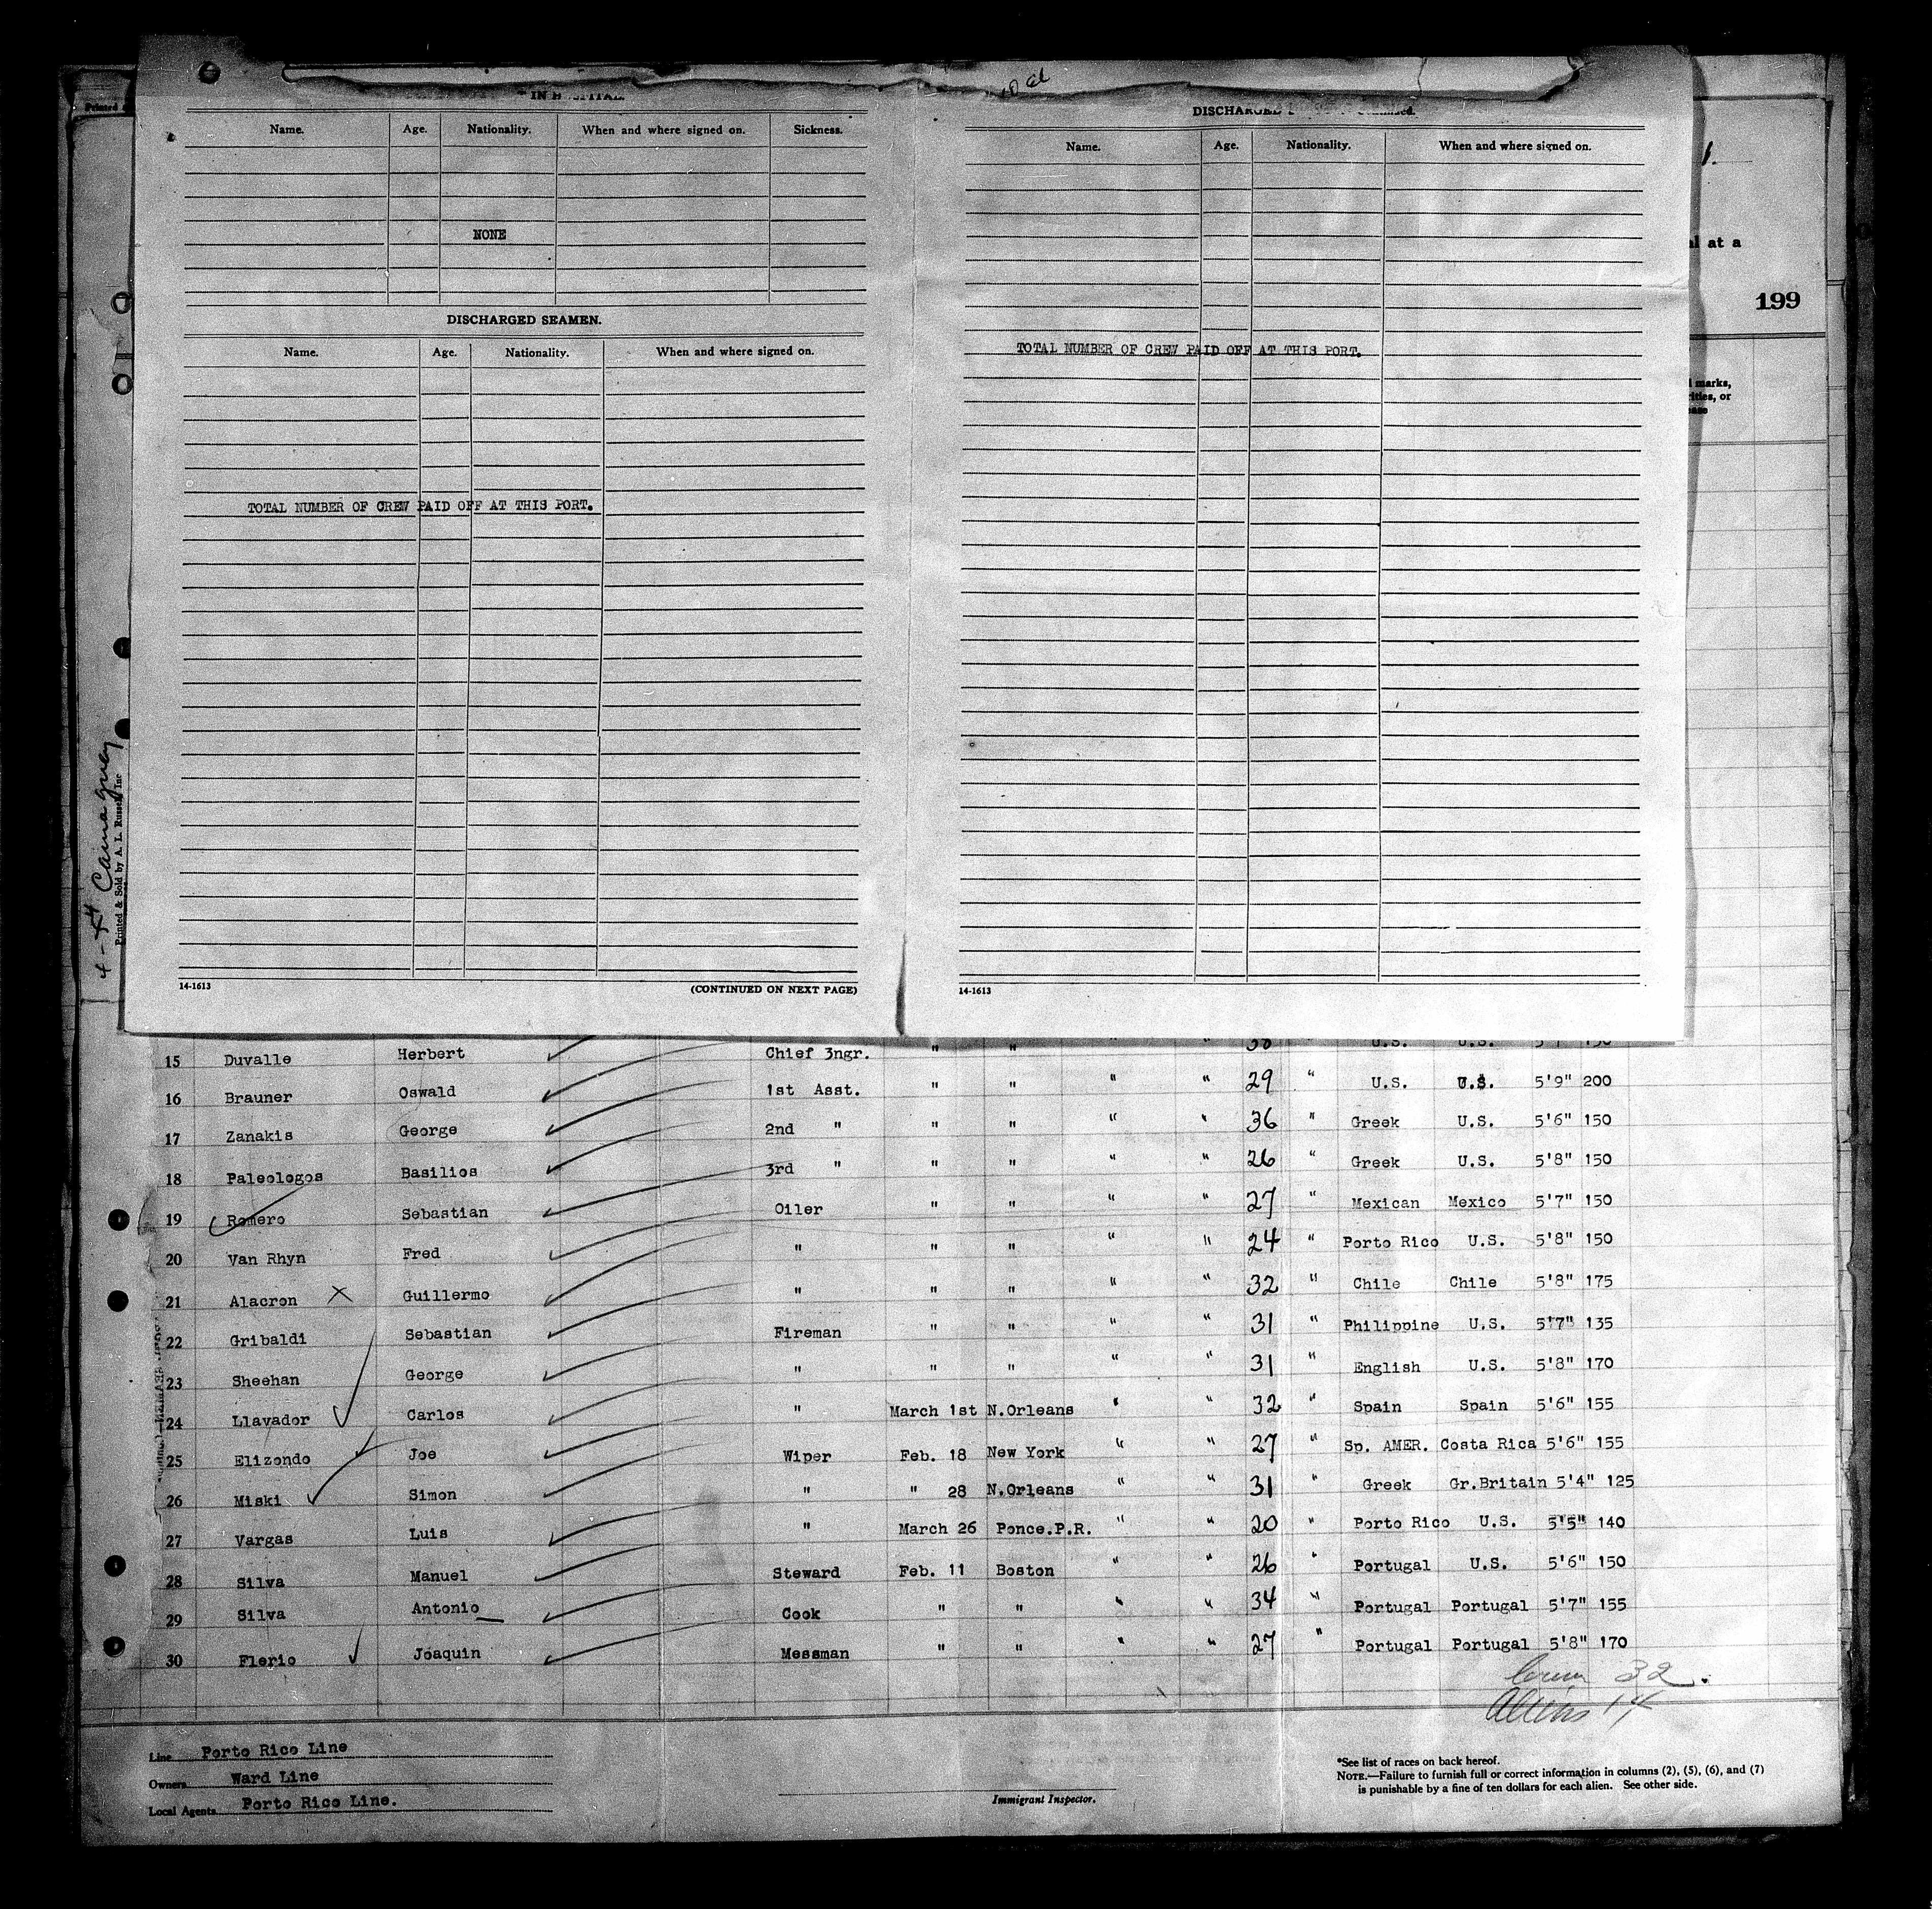 Printed
10 al
IN HOSPITAL
Name. Age. Nationality. When and where signed on. Sickness.
NONE
DISCHARGED SEAMEN.
Name. Age. Nationality. When and where signed on.
TOTAL NUMBER OF CREW PAID OFF AT THIS PORT.
14-1613 (CONTINUED ON NEXT PAGE)
DISCHARGED
Name. Age. Nationality. When and where signed on.
TOTAL NUMBER OF CREW PAID OFF AT THIS PORT.
14-1613
1.
al at a
199
marks,
rities, or
ease
Camaguey
Printed & Sold by A. L. Russell, Inc
15 Duvalle Herbert Chief 3ngr. " " 38 U.S. U.S.
16 Brauner Oswald 1st Asst. " " " " 29 " U.S. U.S. 5'9" 200
17 Zanakis George 2nd " " " " " 36 " Greek U.S. 5'6" 150
18 Paleologos Basilios 3rd " " " " " 26 " Greek U.S. 5'8" 150
19 Romero Sebastian Oiler " " " " 27 " Mexican Mexico 5'7" 150
20 Van Rhyn Fred " " " " " 24 " Porto Rico U.S. 5'8" 150
21 Alacron X Guillermo " " " " " 32 " Chile Chile 5'8" 175
22 Gribaldi Sebastian Fireman " " " 31 " Philippine U.S. 5'7" 135
23 Sheehan George " " " " " 31 " English U.S. 5'8" 170
24 Llavador Carlos " March 1st N.Orleans " " 32 " Spain Spain 5'6" 155
25 Elizondo Joe Wiper Feb. 18 New York " " 27 " Sp. AMER. Costa Rica 5'6" 155
26 Miski Simon " " 28 N.Orleans " " 31 " Greek Gr.Britain 5'4" 125
27 Vargas Luis " March 26 Ponce.P.R. " " 20 " Porto Rico U.S. 5'5" 140
28 Silva Manuel Steward Feb. 11 Boston " " 26 " Portugal U.S. 5'6" 150
29 Silva Antonio Cook " " " " 34 " Portugal Portugal 5'7" 155
30 Flerio Joaquin Messman " " " " 27 " Portugal Portugal 5'8" 170
32
Aliens 14
Line Porto Rico Line
Owners Ward Line
Local Agents Porto Rico Line.
Immigrant Inspector.
*See list of races on back hereof.
NOTE.—Failure to furnish full or correct information in columns (2), (5), (6), and (7)
is punishable by a fine of ten dollars for each alien. See other side.